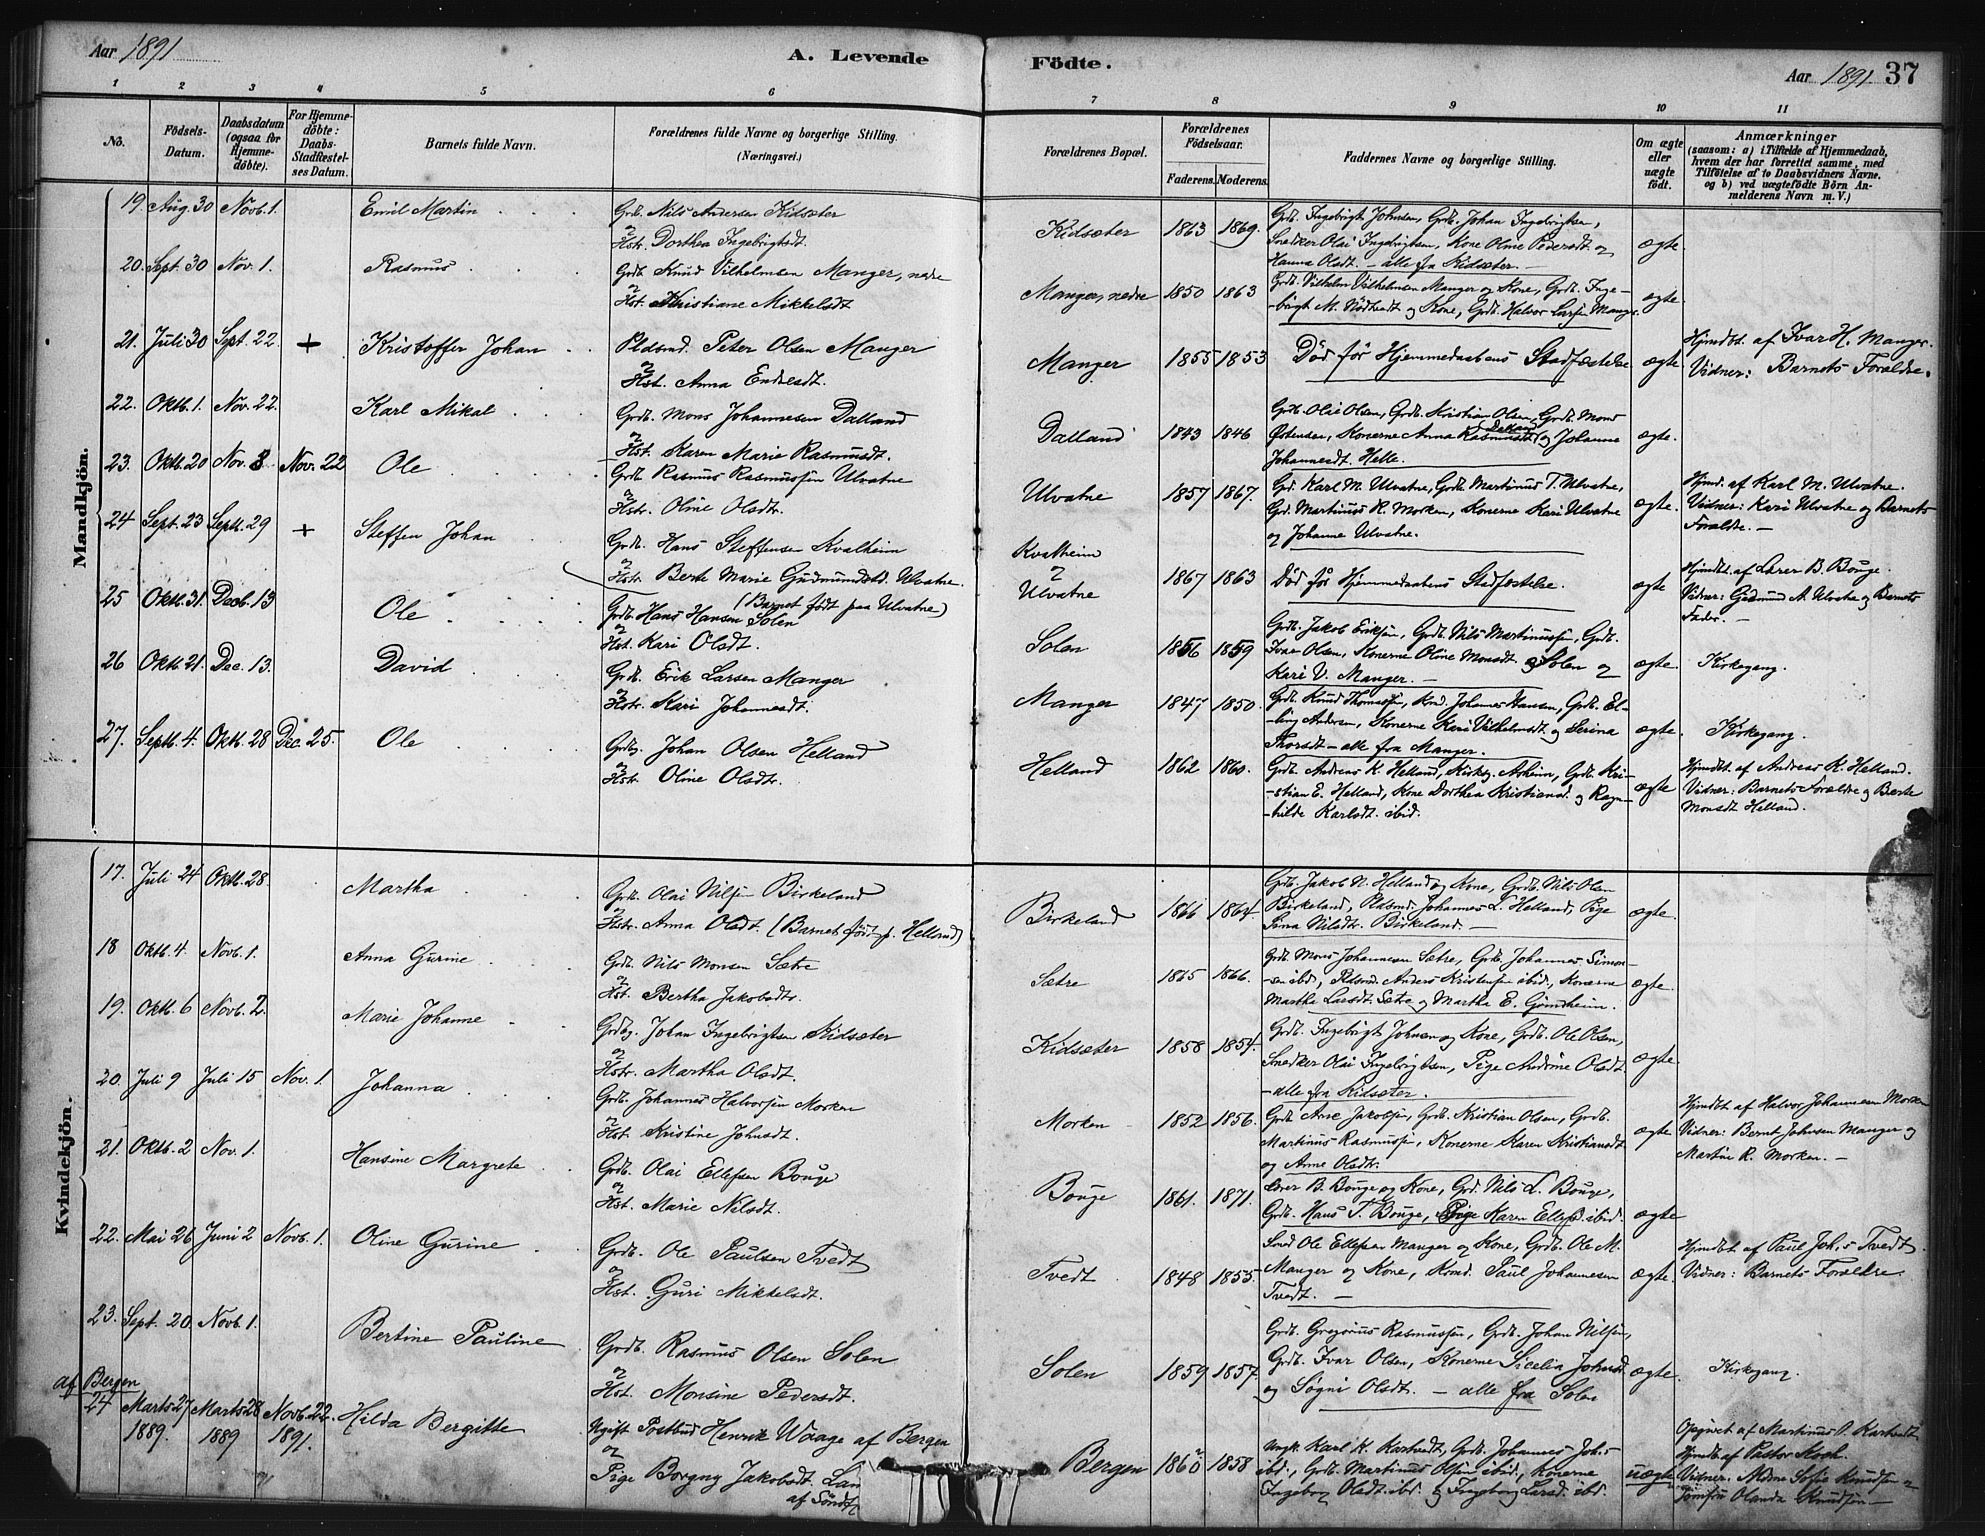 Aar 1891
A. Levende Födte.
Aar 1891. 37
1 2 3 4 5 6 7 8 9 10 11
No.
Födsels-Datum.
Daabsdatum (ogsaa for Hjemmedöbte).
For Hjemmedöbte: Daabs-Stadfæstelses Datum.
Barnets fulde Navn.
Forældrenes fulde Navne og borgerlige Stilling. (Næringsvei.)
Forældrenes Bopæl.
Forældrenes Födselsaar.
Faderens. Moderens.
Faddernes Navne og borgerlige Stilling.
Om ægte eller uægte födt.
Anmærkninger (saasom: a) i Tilfælde af Hjemmedaab, hvem der har forrettet samme, med Tilföielse af to Daabsvidners Navne. og b) ved uægtefödte Börn Anmelderens Navn m. V.)
Mandkjön.
19. Aug. 30 Novb. 1. Emil Martin
Grdb. Nils Andersen Kidsæter
og Hstr. Dorthea Ingebrigtsdt.
Kidsæter 1863 1869.
Grdb. Ingebrigt Johnsen, Grdb. Johan Ingebrigtsen,
Snedker Olai Ingebrigtsen, Kone Oline Pedersdt. og
Hanna Olsdt. – alle fra Kidsæter. –
ægte.
20. Sept. 30 Nov. 1. Rasmus
Grdb. Knud Vilhelmsen Manger, nedre
og Hst. Kristiane Mikkelsdt
Manger, nedre 1850 1863
Grdb. Vilhelm Vilhelmsen Manger og Kone, Grdb. Inge-
-brigt M. og Kone, Grdb. Halvor Larsen Manger.
ægte.
21. Juli 30 Sept. 22. + Kristoffer Johan
Pldsmd. Peter Olsen Manger
og Hst. Anna Endresdt.
Manger 1855 1853
Död för Hjemmedaabens Stadfæstelse
ægte.
Hjmdbt. af Ivar H. Manger.
Vidner: Barnets Forældre.
22. Oktb. 1. Nov. 22. Karl Mikal
Grdb. Mons Johannesen Dalland
og Hst. Karen Marie Rasmusdt.
Dalland 1843 1846
Grdb. Olai Olsen, Grdb. Kristian Olsen, Grdb. Mons
Östensen, Konerne Anna Rasmusdt. Dalland og Johanne
Johannesdt. Helle.
ægte.
23. Oktb. 20 Nov. 3. Nov. 22 Ole
Grdb. Rasmus Rasmussen Ulvatne
og Hstr. Oline Olsdtr.
Ulvatne 1857 1867.
Gd. Karl M. Ulvatne, Grdb. Martinus T. Ulvatne,
Gd. Martinus R. Morken, Konerne Kari Ulvatne
og Johanne Ulvatne.
ægte.
Hjmd. af Karl M. Ulvatne.
Vidner: Kari Ulvatne og Barnets
Forældre. –
24 Sept. 23 Septb. 29 + Steffen Johan
Grdb. Hans Steffensen Kvalheim
og Hstr. Berte Marie Gudmundsd. Ulvatne.
(Barnet födt paa Ulvatne)
Kvalheim
og Ulvatne
1867 1863
Död för Hjemmedaabens Stadfæstelse.
ægte
Hjmdbt. af Lærer B. Bouge.
Vidner: Gudmund A. Ulvatne og Barnets
Fader. –
25 Oktb. 31. Decb. 13 Ole
Grdb. Hans Hansen Solen
og Hst. Kari Olsdt.
Solen 1856 1859
Grdb. Jakob Eriksen, Grdb. Nils Martinussen, Grdb.
Ivar Olsen, Konerne Oline Monsdt. Solen og
Kari V. Manger. –
ægte.
Kirkegang.
26 Oktb. 21. Dec. 13. David
Grdb. Erik Larsen Manger
og Hstr. Kari Johannesdt.
Manger 1847 1850.
Grdb. Knud Thomassen, Johannes Hansen, Grdb. El-
-ling Andersen, Konerne Kari Vilhelmsdt. og Serina
Thorsdt – alle fra Manger.
ægte.
Kirkegang.
27. Septb. 4. Oktb. 28 Dec. 25. Ole
Grdbg. Johan Olsen Helland
og Hstr. Oline Olsdtr.
Helland 1862 1860.
Grdb. Andreas K. Helland, Grdb. Kri-
-stian E. Helland, Kone Dorthea Kristiansd. og Ragn-
-hilde Karlsdt. ibid.
ægte
Hjmdbt. af Andreas K. Helland.
Vidner: Barnets Forældre og Berte
Monsdt Helland.
Kvindekjön.
17. Juli 24 Oktb. 28. Martha
Grdb. Olai Nilsen Birkeland
og Hstr. Anna Olsdt. (Barnet födt p. Helland)
Birkeland 1866 1864.
Grdb. Jakob N. Helland og Kone, Grdb. Nils Olsen
Birkeland, Pldsmd. Johannes L. Helland, Pige
Sina Nilsdtr. Birkeland. –
ægte.
18 Oktb. 4. Novb. 1. Anna Gurine
Grdb. Nils Monsen Sætre
og Hst. Bertha Jakobsdtr.
Sætre 1865 1866.
Grdb. Mons Johannesen Sætre, Grdb. Johannes Simon-
sen ibd., Pldsmd. Anders Kristensen ibid., Konerne
Martha Larsdt. Sætre og Martha E.
ægte.
19. Oktb. 6 Novb. 2. Marie Johanne
Grdbg. Johan Ingebrigtsen Kidsæter
og Hstr. Martha Olsdt.
Kidsæter 1858 1854.
Grdb. Ingebrigt Johnsen og Kone, Grdb. Ole Olsen,
Snedker Olai Ingebrigtsen, Pige Andrine Olsdt.
– alle fra Kidsæter.
ægte.
20. Juli 9 Juli 15 Nov. 1. Johanna
Grdb. Johannes Halvorsen Morken
og Hst. Kristine Johnsdt.
Morken 1852 1856.
Grdb. Arne Jakobsen, Grdb. Kristian Olsen, Grdb.
Martinus Rasmussen, Konerne Karen Kristiansdt
og Anne Olsdtr.
ægte
Hjmdbt. af Halvor Johannesen Morken
Vidner: Bernt Johnsen Manger og
Martin R. Morken. –
21. Oktb. 2 Nov. 1. Hansine Margrete
Grdb. Olai Ellefsen Bouge
og Hst. Marie Nilsdt.
Bouge 1861. 1871.
Lærer B. Bouge og Kone, Grd. Nils L. Bouge,
Grdb. Hans T. Bouge, Pige Karen Ellefsd. ibid.
ægte
22. Mai 26 Juni 2 Novb. 1. Oline Gurine
Grdb. Ole Paulsen Tvedt
og Hst. Guri Mikkelsdt.
Tvedt 1848 1855.
Smed Ole Ellefsen Manger og Kone, Grdb. Ole M.
Manger og Kone, Paul Johannesen
Tvedt. –
ægte.
Hjmdbt. af Paul Joh.s Tvedt.
Vidner: Barnets Forældre.
23. Sept. 20. Novb. 1. Bertine Pauline
Grdb. Rasmus Olsen Solen
og Hst. Monsine Pedersdt.
Solen 1859 1857.
Grdb. Gregorius Rasmussen, Grdb. Johan Nilsen,
Grdb. Ivar Olsen, Konerne Sicelia Johnsd.
og Sögni Olsdt. – alle fra Solen
ægte.
Kirkegang.
af Bergen
24 Marts 27 1889. Marts 28 1889 Novb. 22. 1891. Hilda Bergitte
Ugift Postbud Henrik Waage af Bergen
og Pige Borgny Jakobsdt
Bergen 1860 1858
Ungk. Karl K. Grdb. Johannes Joh.s
ibd., Grdb. Martinus Olsen ibid., Konerne
Ingeborg Olsdt. ibd. og Ingeborg Larsd. ibd.
uægte
Opgivet af Martinus O.
Hjmdb. af Pastor Koch.
Vidner: Mdme Sofie Knudsen og
Jomfru Olanda Knudsen –